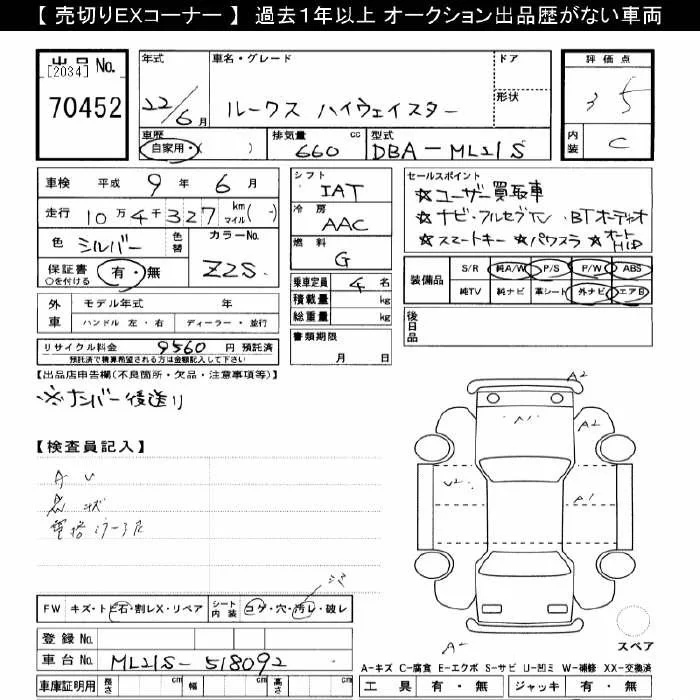 【 売切りEXコーナー 】 過去１年以上 オークション出品歴がない車両
出品 No.
[2034]
70452
年式
22/6月
車名・グレード
ルークス ハイウェイスター
ドア
形状
評価点
3.5
内装
C
車歴
自家用・( )
排気量
660 cc
型式
DBA-ML21S
車検 平成 9 年 6 月
走行 10万4千327 km マイル( - )
色 シルバー
色替
カラーNo.
Z2S
保証書
○を付ける
有・無
シフト
IAT
冷房
AAC
燃料
G
乗車定員 4 名
積載量 kg
総重量 kg
書類期限
月 日
セールスポイント
☆ユーザー買取車
☆ナビ・フルセグTV ・BTオーディオ
☆スマートキー ☆パワスラ ☆オートHID
装備品
S/R 純A/W P/S P/W ABS
純TV 純ナビ 革シート 外ナビ エアB
後日品
外車
モデル年式 年
ハンドル 左・右 ディーラー・並行
リサイクル料金 9560 円 預託済
預託済で積算希望される方は金額記入して下さい
【出品店申告欄(不良箇所・欠品・注意事項等)】
※ナンバー後送り
【検査員記入】
A U
FW キズ・トビ石・割レX・リペア
シート内装 コゲ・穴・汚レ・破レ
登録 No.
車台 No. ML21S-518092
車庫証明用 長さ cm 幅 cm 高さ cm
A2
A1
A2
U2
A1
A2
スペア
A-キズ C-腐食 E-エクボ S-サビ U-凹ミ W-補修 XX-交換済
工具 有・無 ジャッキ 有・無